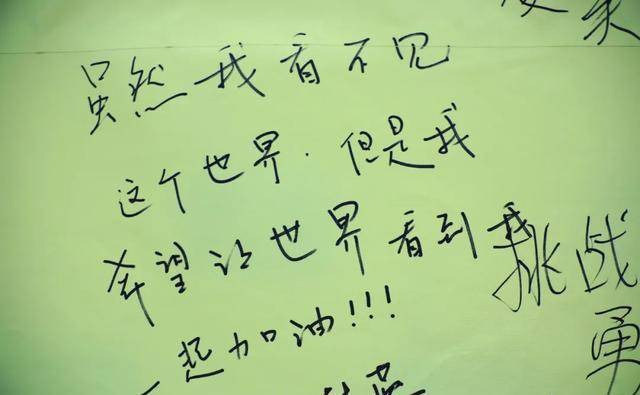 虽然我看不见
这个世界.但是我
希望让世界看到我
一起加油!!!
挑战
勇